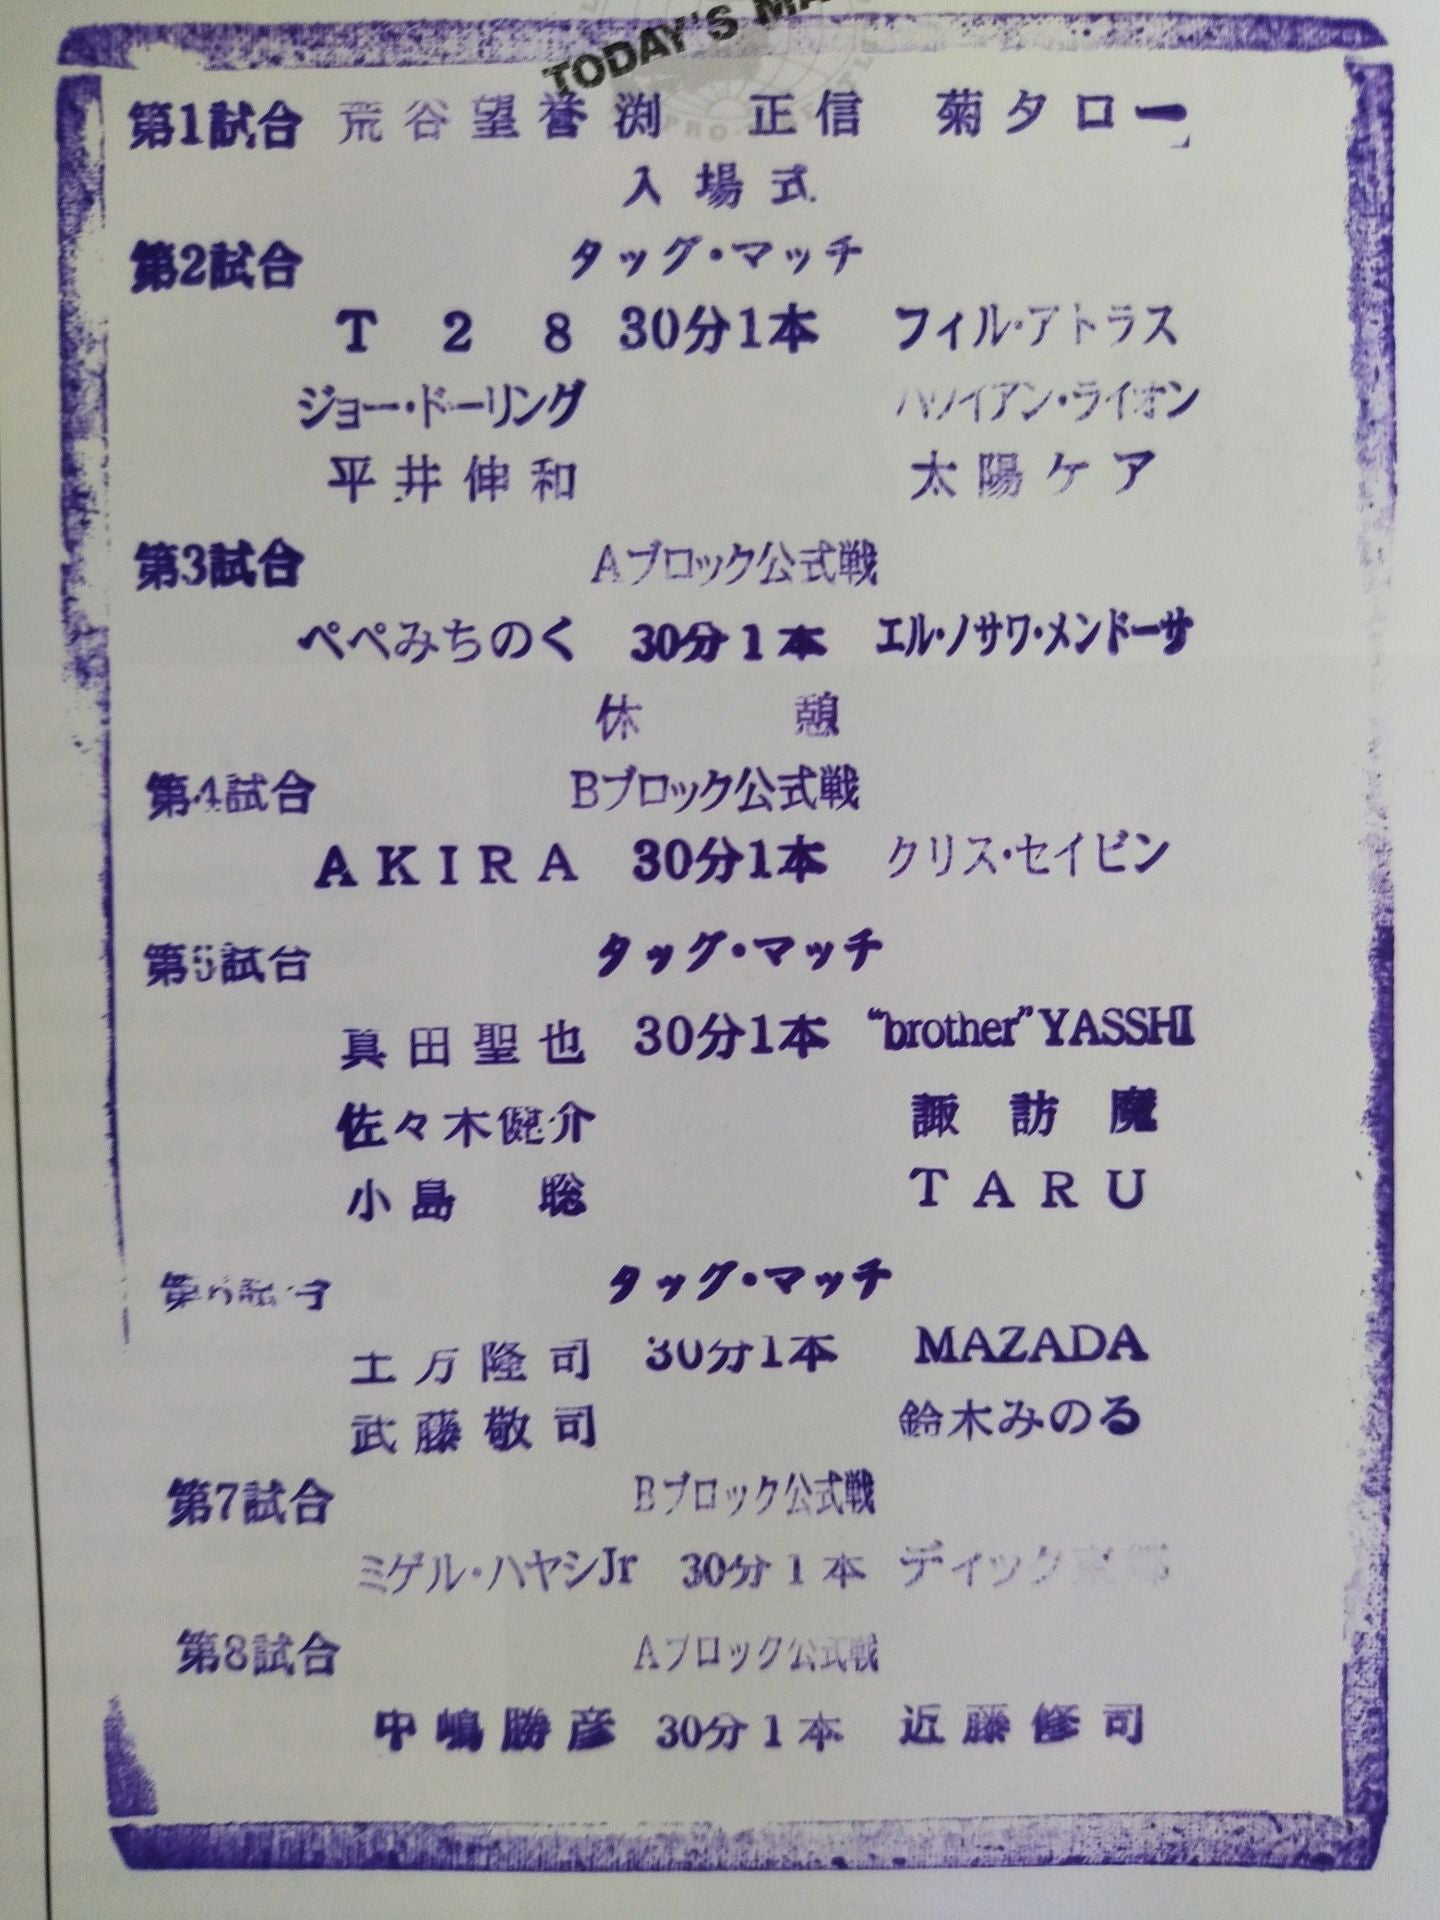 TODAY'S
PRO
第1試合 荒谷望誉 渕 正信 菊タロー
入場式
第2試合 タッグ・マッチ
T28 30分1本 フィル・アトラス
ジョー・ドーリング ハワイアン・ライオン
平井伸和 太陽ケア
第3試合 Aブロック公式戦
ペペみちのく 30分1本 エル・ノサワ・メンドーサ
休憩
第4試合 Bブロック公式戦
AKIRA 30分1本 クリス・セイビン
第5試合 タッグ・マッチ
真田聖也 30分1本 “brother”YASSHI
佐々木健介 諏訪魔
小島 聡 TARU
第6試合 タッグ・マッチ
土方隆司 30分1本 MAZADA
武藤敬司 鈴木みのる
第7試合 Bブロック公式戦
ミゲル・ハヤシJr 30分1本 ディック東郷
第8試合 Aブロック公式戦
中嶋勝彦 30分1本 近藤修司